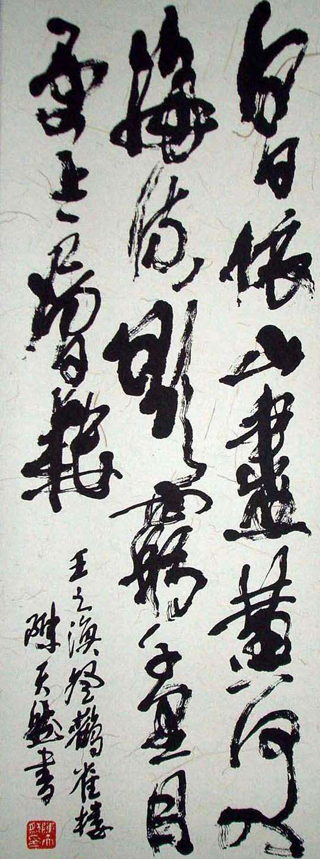 白日依山盡黃河入
海流欲窮千里目
更上一層樓
王之渙登鸛雀樓
陳天書